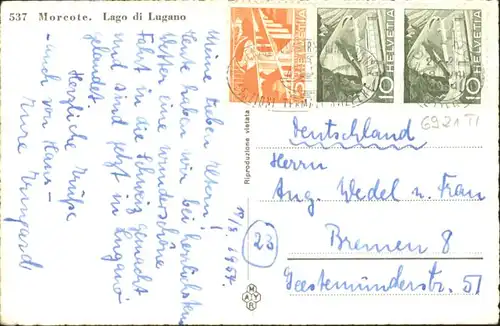 537 Morcote. Lago di Lugano
Meine lieben Eltern!
Heute haben wir bei herrlichstem
Wetter eine wunderschöne
Fahrt in die Schweiz gemacht
und sind jetzt in Lugano
gelandet.
Herzliche Grüße
- auch von Hans -
Eure Irmgard
Riproduzione vietata
MAYR
HELVETIA
5
HELVETIA
10
HELVETIA
10
6921 TI
Deutschland
Herrn
Aug. Wedel u. Frau
23
Bremen 8
Geestemünderstr. 51